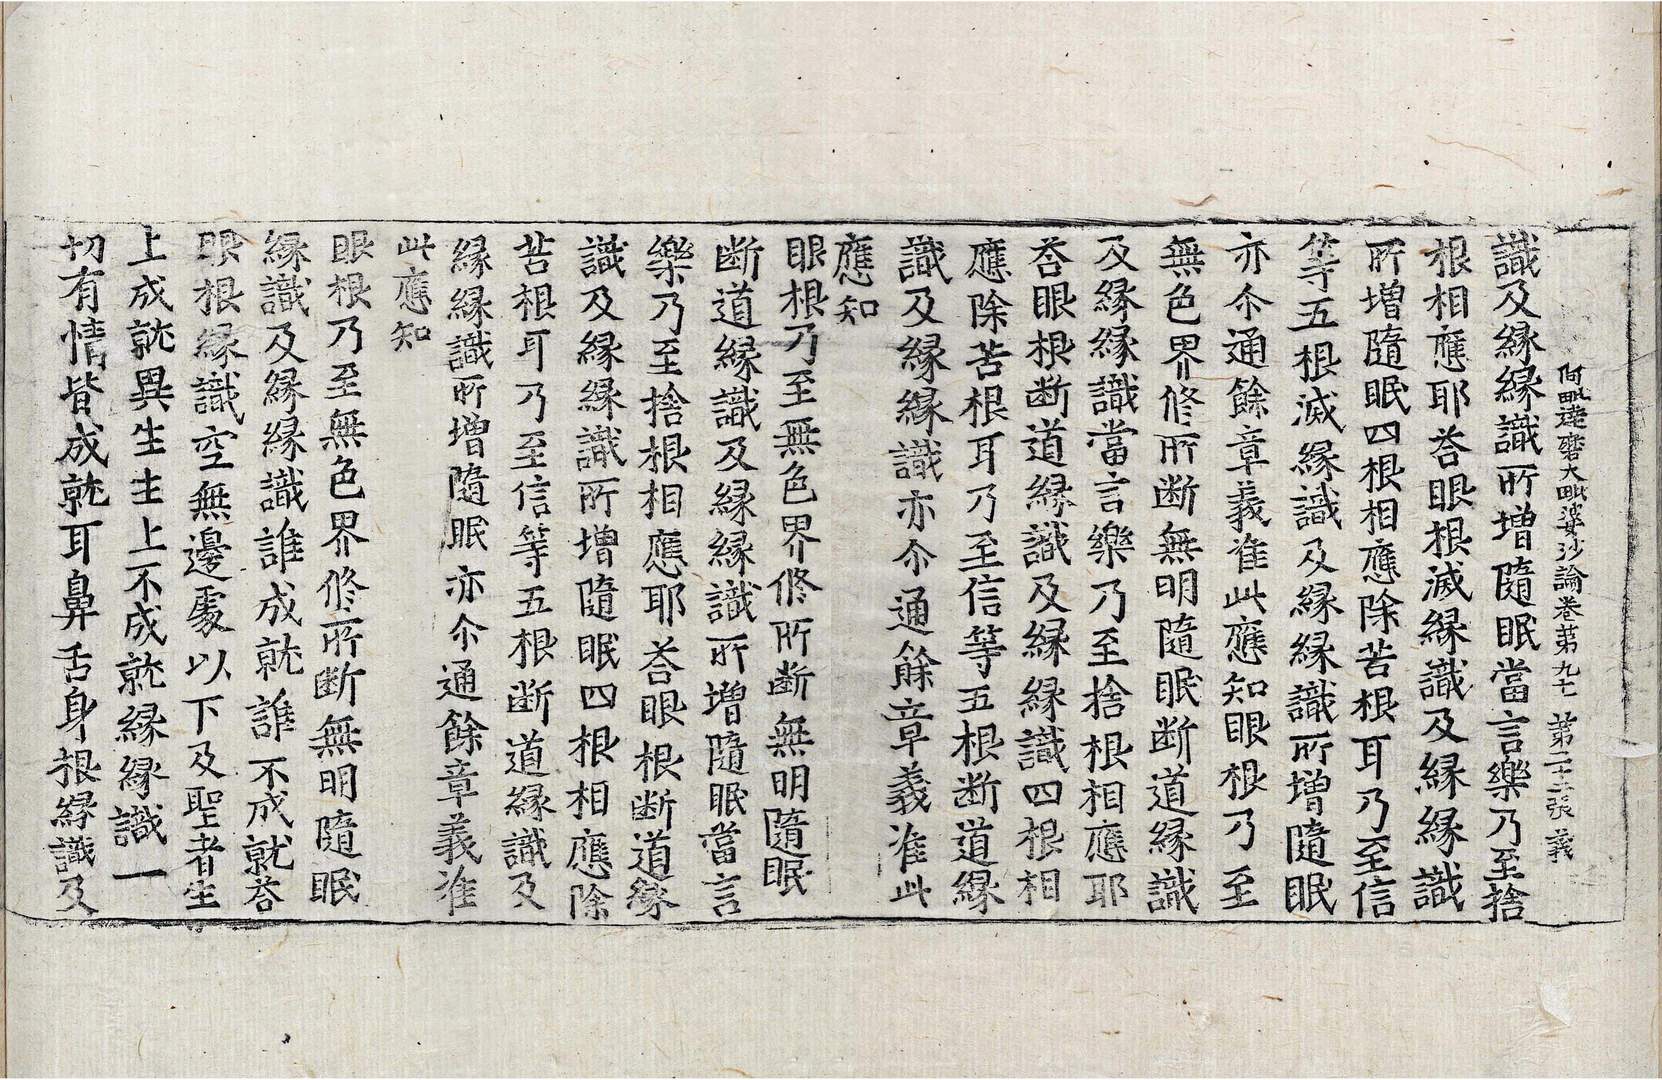 阿毗達磨大毗婆沙論卷第九十 第二十三張 義
識及緣緣識所增隨眠當言樂乃至捨
根相應耶荅眼根滅緣識及緣緣識
所增隨眠四根相應除苦根耳乃至信
等五根滅緣識及緣緣識所增隨眠
亦尒通餘章義准此應知眼根乃至
無色界修所斷無明隨眠斷道緣識
及緣緣識當言樂乃至捨根相應耶
荅眼根斷道緣識及緣緣識四根相
應除苦根耳乃至信等五根斷道緣
識及緣緣識亦尒通餘章義准此
應知
眼根乃至無色界修所斷無明隨眠
斷道緣識及緣緣識所增隨眠當言
樂乃至捨根相應耶荅眼根斷道緣
識及緣緣識所增隨眠四根相應除
苦根耳乃至信等五根斷道緣識及
緣緣識所增隨眠亦尒通餘章義准
此應知
眼根乃至無色界修所斷無明隨眠
緣識及緣緣識誰成就誰不成就荅
眼根緣識空無邊處以下及聖者生
上成就異生生上不成就緣緣識一
切有情皆成就耳鼻舌身根緣識及